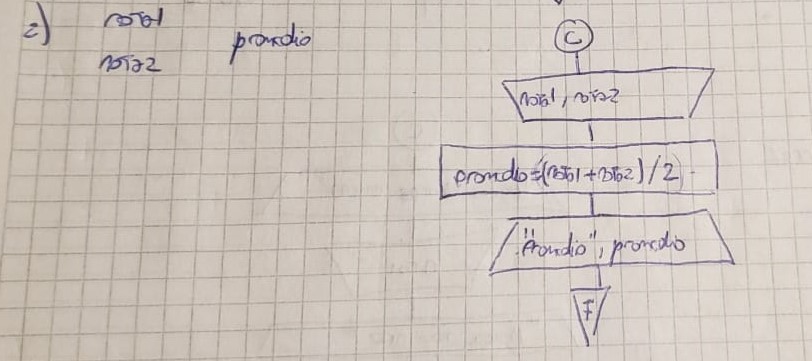 2)
nota1
nota2
promedio
C
nota1, nota2
promedio=(nota1+nota2)/2
"Promedio", promedio
F